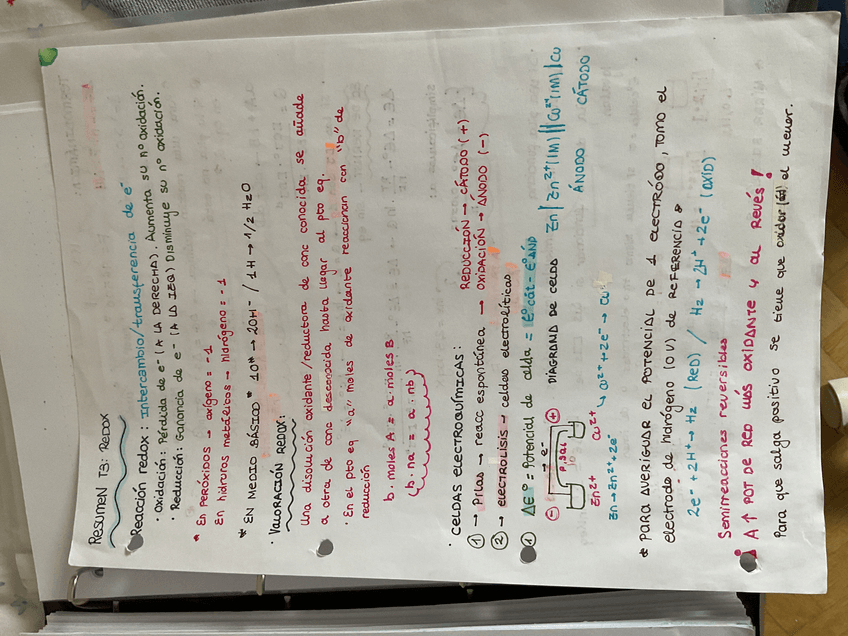 Resumen T3: Redox
Reacción redox: Intercambio/transferencia de e-
· Oxidación: Pérdida de e- (A LA DERECHA). Aumenta su nº oxidación.
· Reducción: Ganancia de e- (A LA IZQ) Disminuye su nº oxidación.
* En PERÓXIDOS → oxígeno = -1
En hidruros metálicos → hidrógeno = -1
* EN MEDIO BÁSICO * 1O* → 2OH- / 1H → 1/2 H2O
· VALORACIÓN REDOX:
Una disolución oxidante/reductora de conc conocida se añade
a otra de conc desconocida hasta llegar al pto eq.
· En el pto eq "a" moles de oxidante reaccionan con "b" de
reducción
b · moles A = a · moles B
b · na = a · nb
· CELDAS ELECTROQUÍMICAS:
① → Pilas → reacc espontánea → REDUCCIÓN → CÁTODO (+)
OXIDACIÓN → ÁNODO (-)
② → ELECTROLISIS → celdas electrolíticas
① ΔEº = Potencial de celda = Eºcát - EºÁND
DIAGRAMA DE CELDA Zn|Zn2+(1M)||Cu2+(1M)|Cu
ÁNODO CÁTODO
⊖ → e- ⊕
P. sal
Zn2+ Cu2+
Zn → Zn2+ + 2e- Cu2+ + 2e- → Cu
* PARA AVERIGUAR EL POTENCIAL DE 1 ELECTRODO, TOMO el
electrodo de hidrógeno (0 V) de REFERENCIA
2e- + 2H+ → H2 (RED) / H2 → 2H+ + 2e- (OXID)
Semirreacciones reversibles
A ↑ POT DE RED MÁS OXIDANTE y AL REVÉS!
Para que salga positivo se tiene que oxidar el menor.